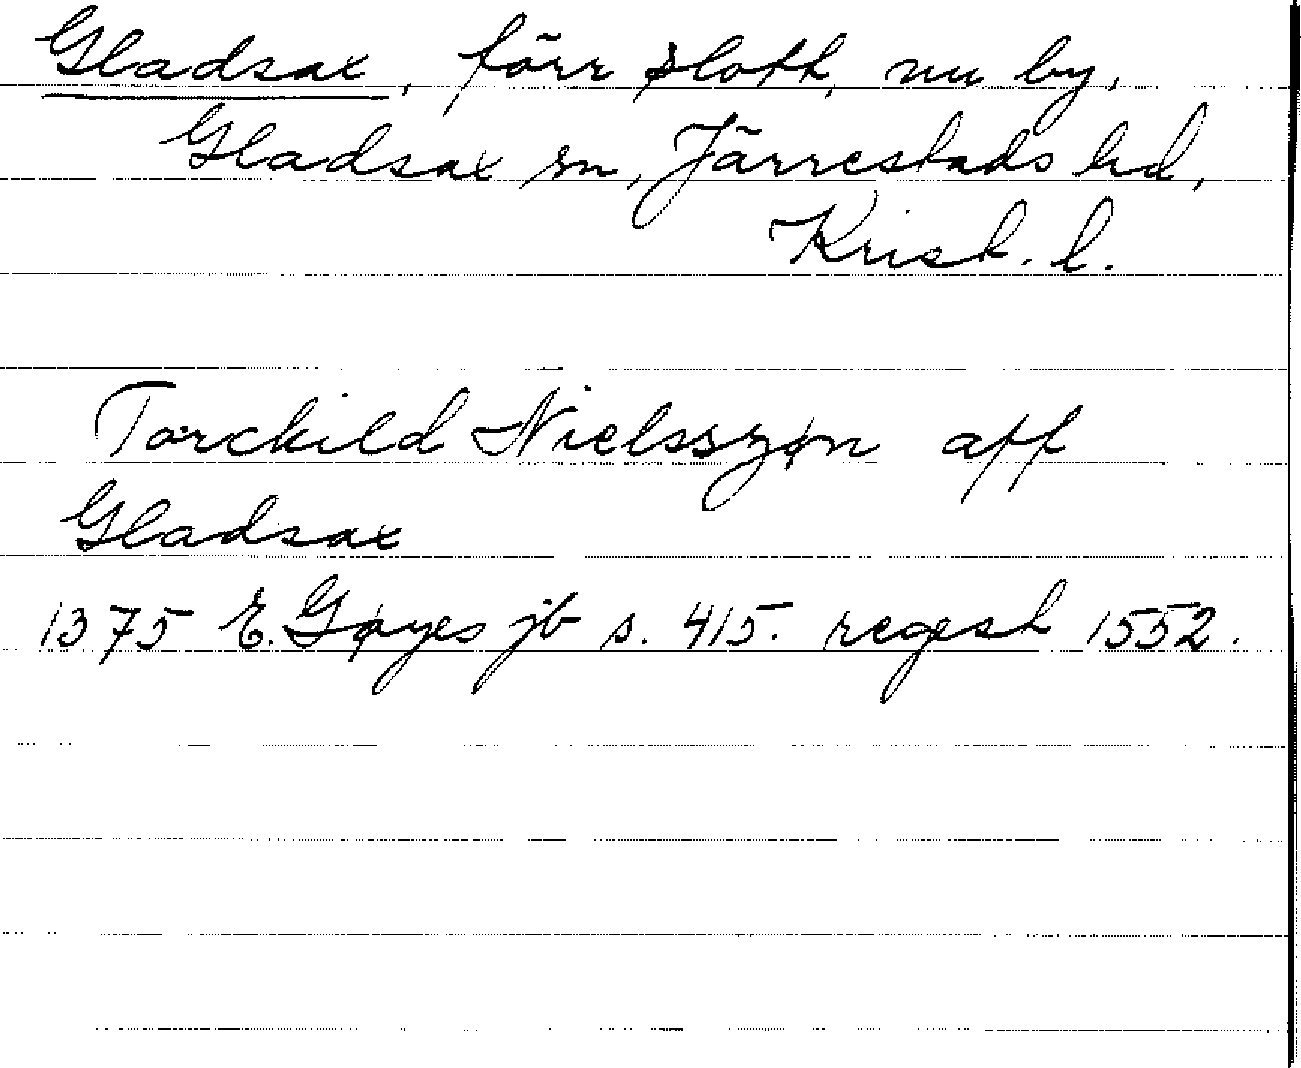 Gladsax, förr slott, nu by,
Gladsax sn, Järrestads hd,
Krist. l.
Torckild Nielsszøn aff
Gladsax
1375 E. Gøyes jb s. 415. regest 1552.